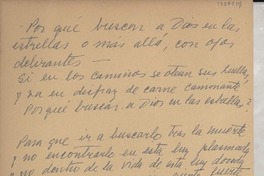 Por qué buscar a Dios en las
estrellas o mas allá, con ojos
delirantes —
Si en los caminos se otean sus huellas
y va en disfraz de carne caminante.
Por qué buscar a Dios en las estrellas?
Para que ir a buscarlo tras la muerte
y no encontrarlo en esta luz plasmada
y no dentro de la vida de este